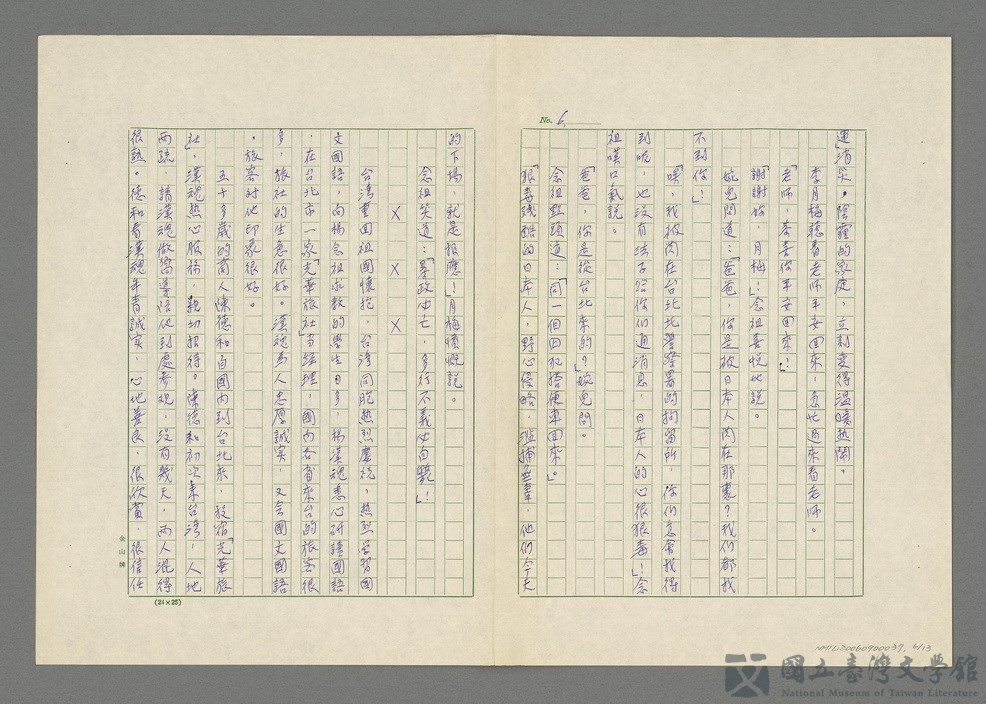 No. 6.
運消災。陰薶的家庭，立刻變得溫暖熱鬧。
李月梅聽着老师平安回來，急忙過來看老师。
「老师，恭喜你平安回來！」
「謝謝妳，月梅！」念祖喜悅地說。
婉兒問道：「爸爸，你是被日本人関在那裏？我们都找
不到你！」
「唉，我被関在台北北警察署的拘留所，你们怎會找得
到呢，也沒有法子給你们通消息，日本人的心很狠毒！」念
祖嘆口氣說。
「爸爸，你是從台北來的？」婉兒問。
念祖點頭道：「同一個囚犯搭便車回來。」
「狠毒殘酷的日本人，野心侵略，濫捕無辜，他们今天
的下場，就是报應！」月梅憤慨說。
念祖笑道：「暴政必亡，多行不義必自斃！」
X X X
台湾重回祖國懷抱，台湾同胞熱烈慶祝，熱烈学習國
文國語，向楊念祖求教的學生日多，楊漢魂悉心研讀國語
，在台北市一家「光華旅社」当経理，國內各省來台的旅客很
多，旅社的生意很好。漢魂為人忠厚誠实，又会國文國語
，旅客対他印象很好。
五十多歲的商人陳德和自國內到台北來，投宿「光華旅
社」，漢魂熱心服務，親切招待。陳德和初次來台湾，人地
两疏，請漢魂做嚮導陪他到處参观，沒有幾天，两人混得
很熟。德和看漢魂年青誠实，心地善良，很欣賞，很信任
金山牌
(24×25)
NMTL20060900037, 6/13
國立臺灣文學館
National Museum of Taiwan Literature